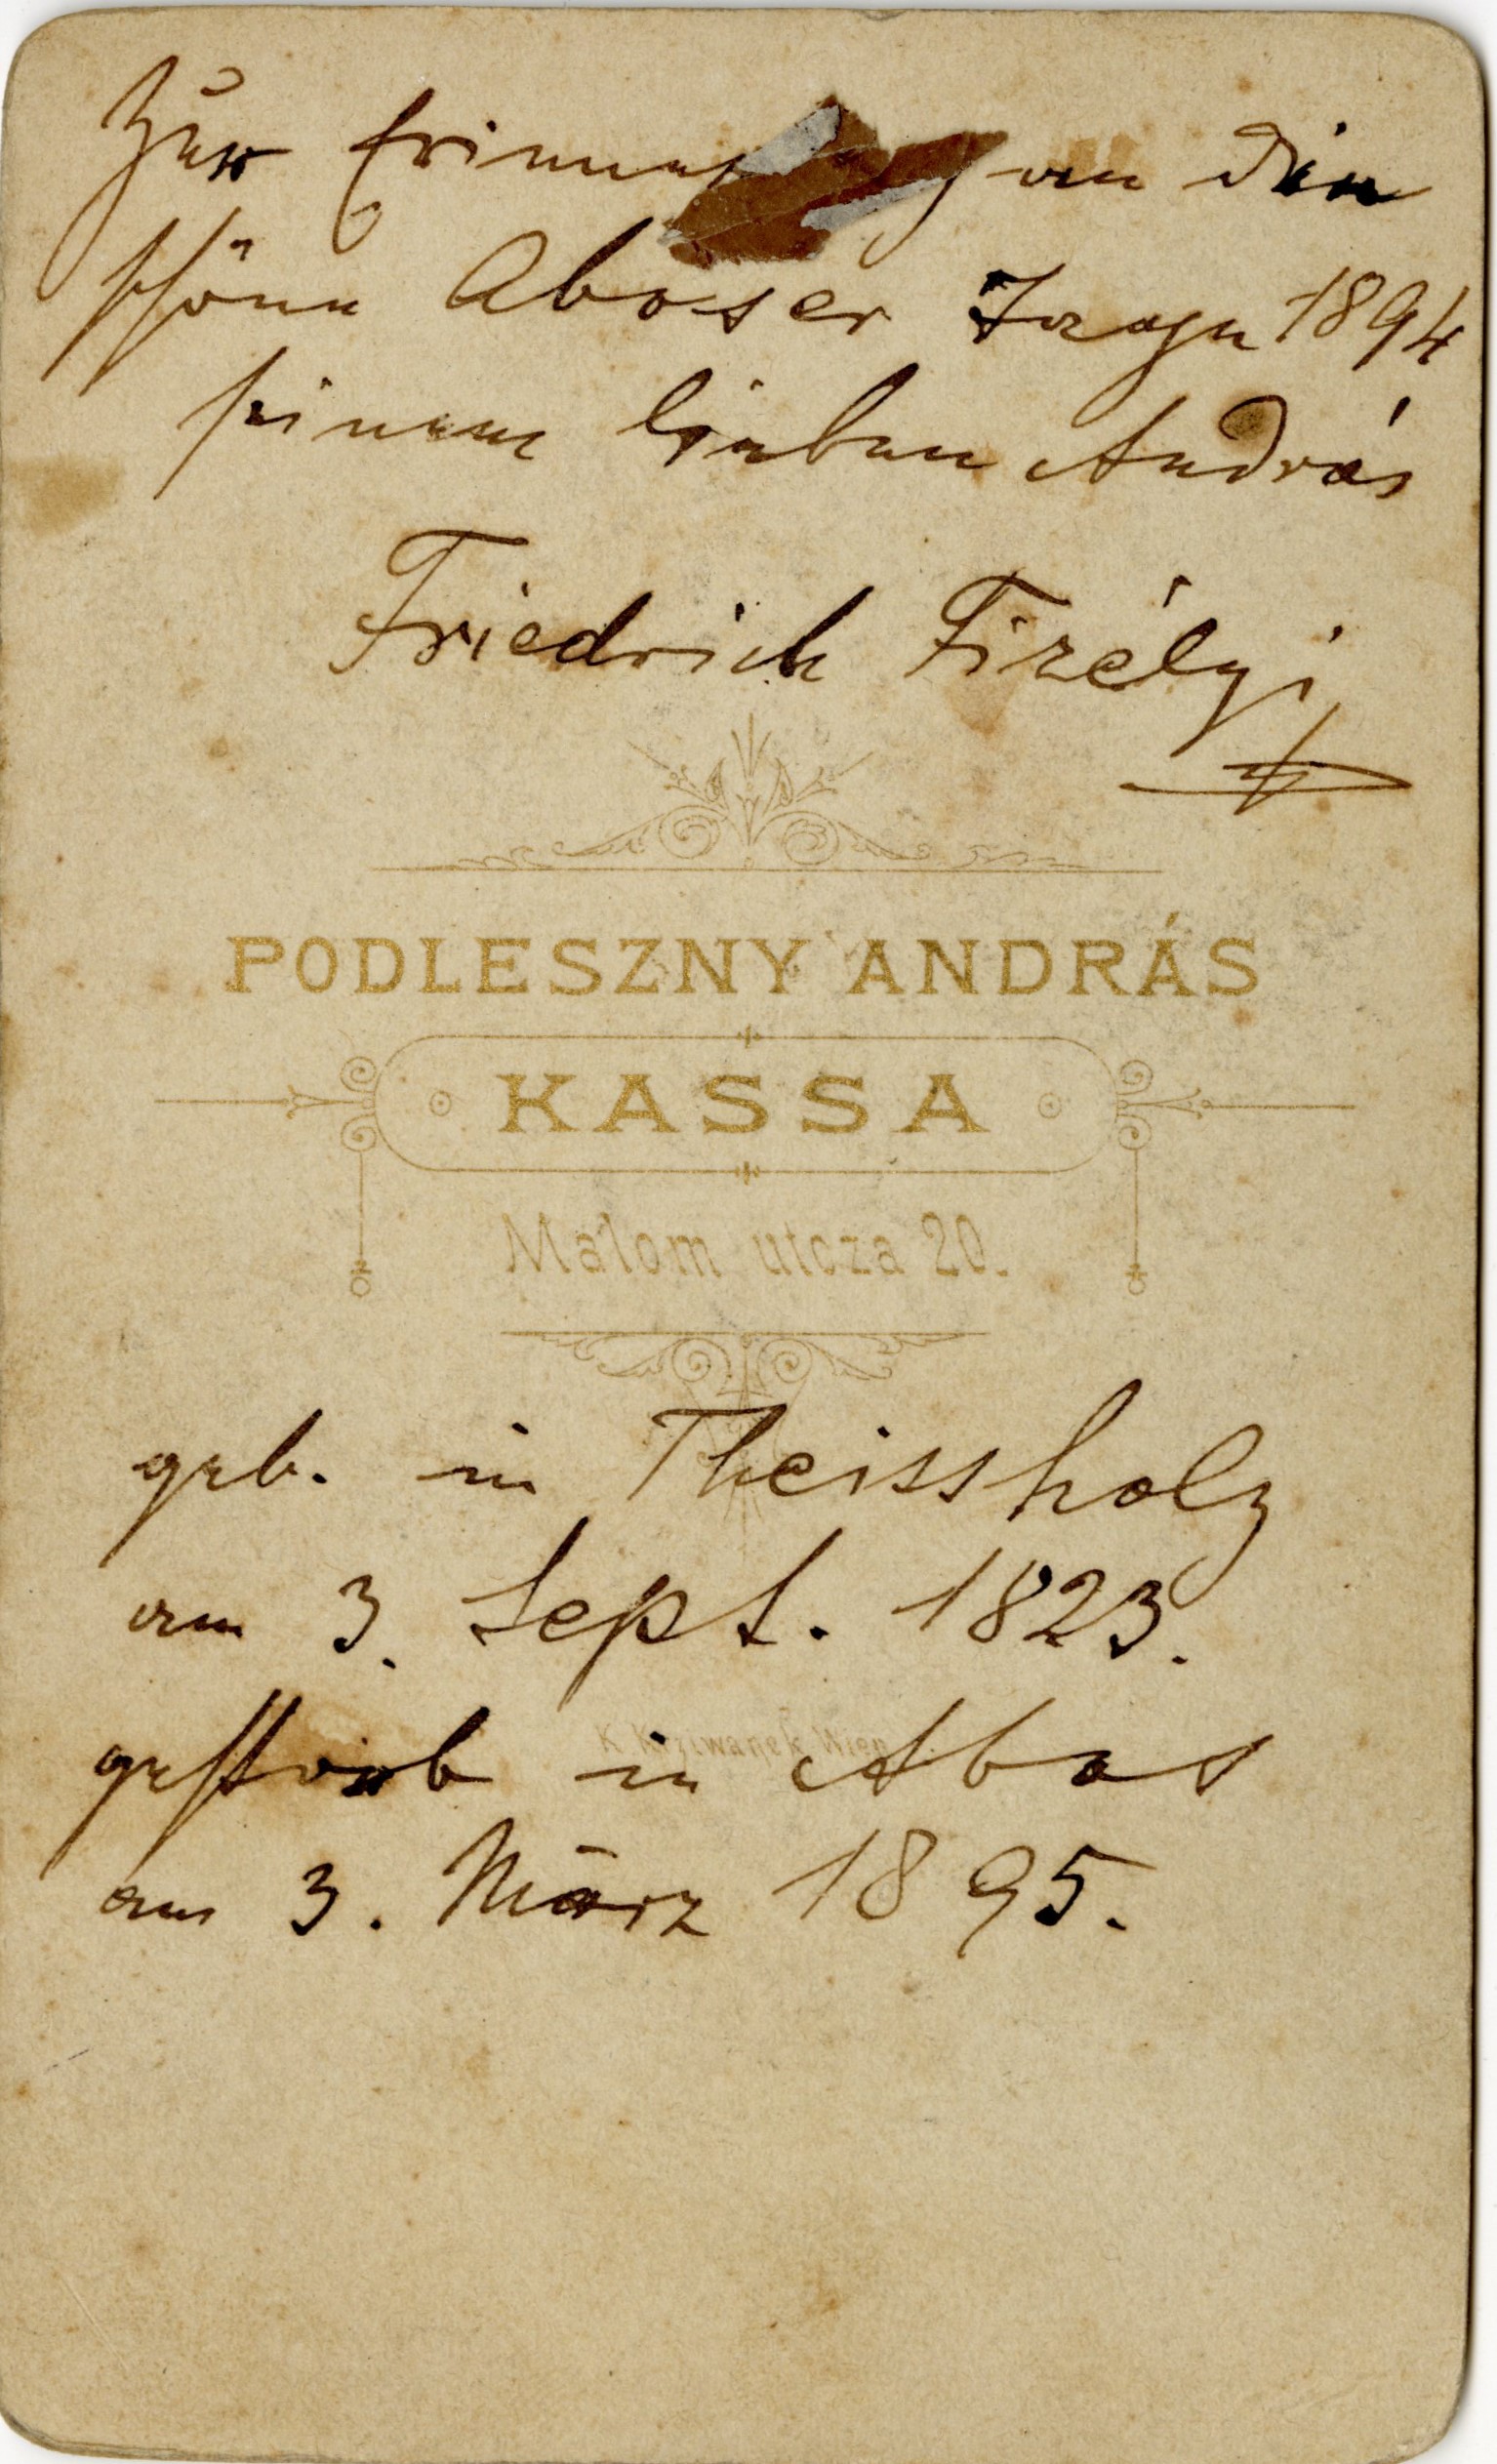 Zur Erinnerung an die
schöne Aboser Tage 1894
seinem lieben András
Friedrich Fizélyi
PODLESZNY ANDRÁS
KASSA
Malom utcza 20.
geb. in Theissholz
am 3. Sept. 1823.
gestorb in Abos
K. Krziwanek Wien
am 3. März 1895.